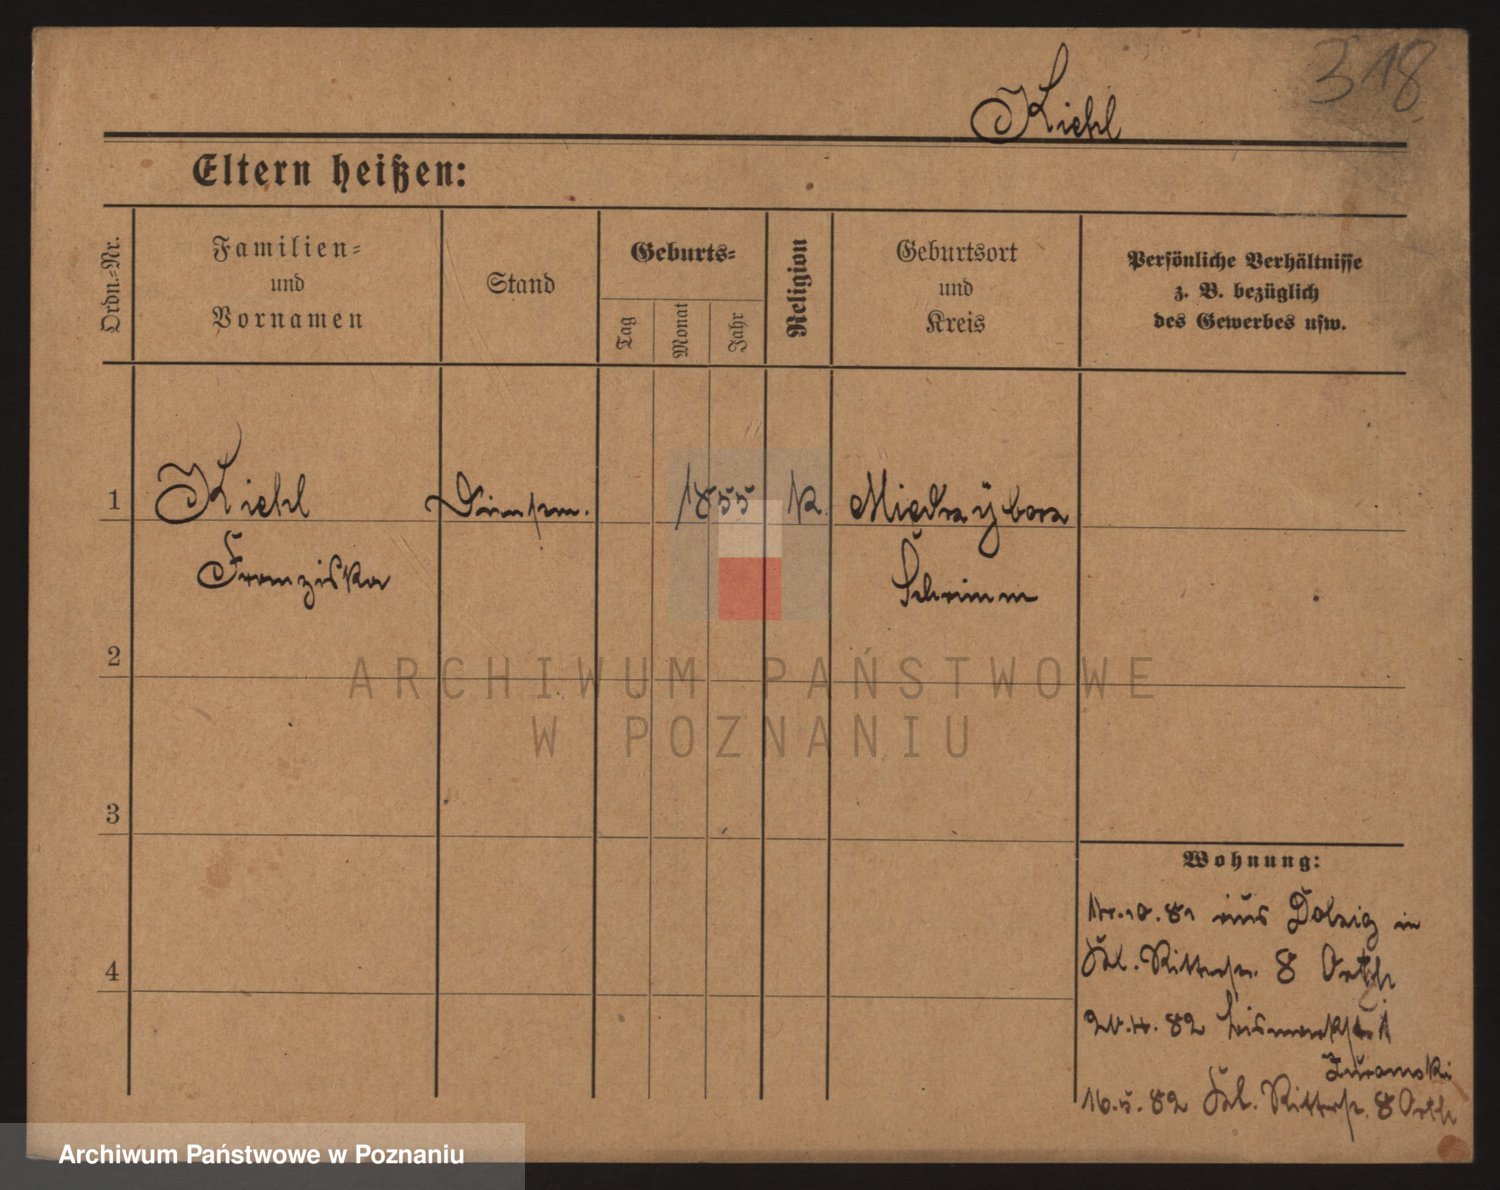 318.
Kiehl
Eltern heißen:
Ordn.=Nr.
Familien=
und
Vornamen
Stand
Geburts=
Tag
Monat
Jahr
Religion
Geburtsort
und
Kreis
Persönliche Verhältnisse
z. B. bezüglich
des Gewerbes usw.
1
Kiehl
1855
K.
Franziska
Schrimm
2
ARCHIWUM PAŃSTWOWE
W POZNANIU
3
Wohnung:
10. 81 aus Dolzig in
Ritterstr. 8
4. 82 Bismarckstr. 1
Zuromski
16. 5. 82 Ritterstr. 8
4
Archiwum Państwowe w Poznaniu